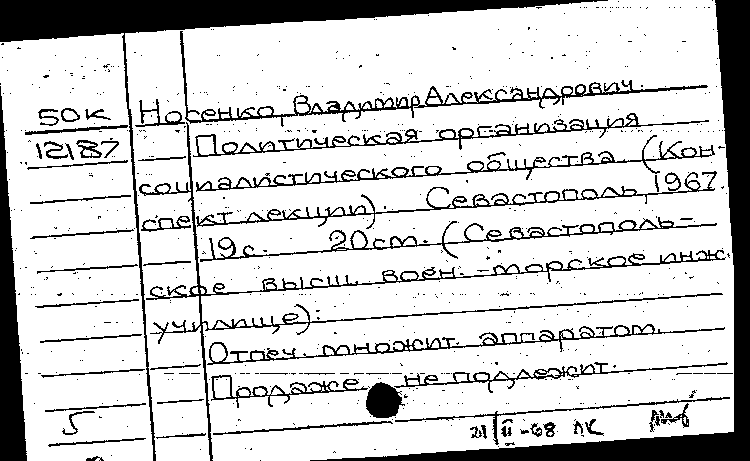 50К Носенко, Владимир Александрович.
12187 Политическая организация
социалистического общества (Кон-
спект лекции). Севастополь, 1967.
19с. 20см. (Севастополь-
ское высш. воен.-морское инж.
училище):
Отпеч. множит. аппаратом.
Продаже не подлежит.
5
21/II-68 ЛК